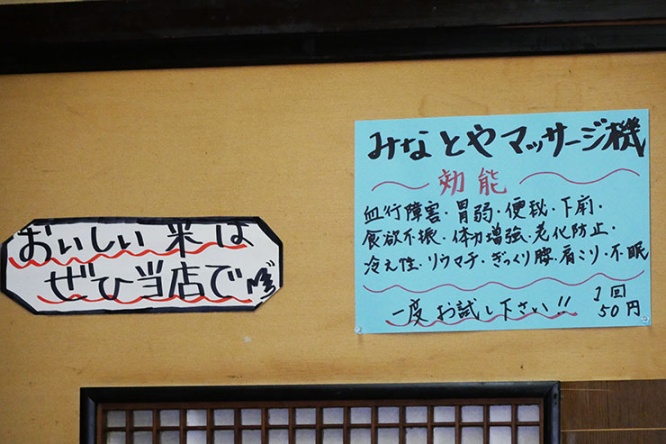 おいしい米は
ぜひ当店で
みなとやマッサージ機
効能
血行障害・胃弱・便秘・下痢・
食欲不振・体力増強・老化防止・
冷え性・リウマチ・ぎっくり腰・肩こり・不眠
一度お試し下さい!!
1回
50円